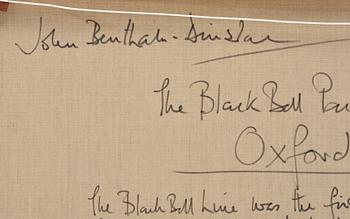 John Bentham-Dinsdale
The Black Ball Pa
Oxford
The Black Ball Line was the fir